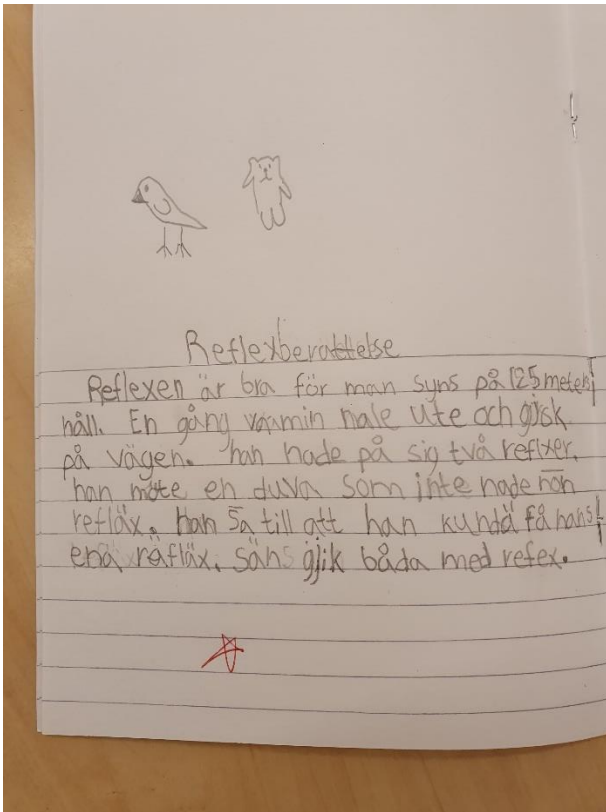 Reflexberattelse
Reflexen är bra för man syns på 125 meters
håll. En gång var min nale ute och gjick
på vägen. han hade på sig två reflxer.
han möte en duva som inte hade nån
refläx. han sa till att han kundä få hans
ena räfläx. säns gjik båda med refex.